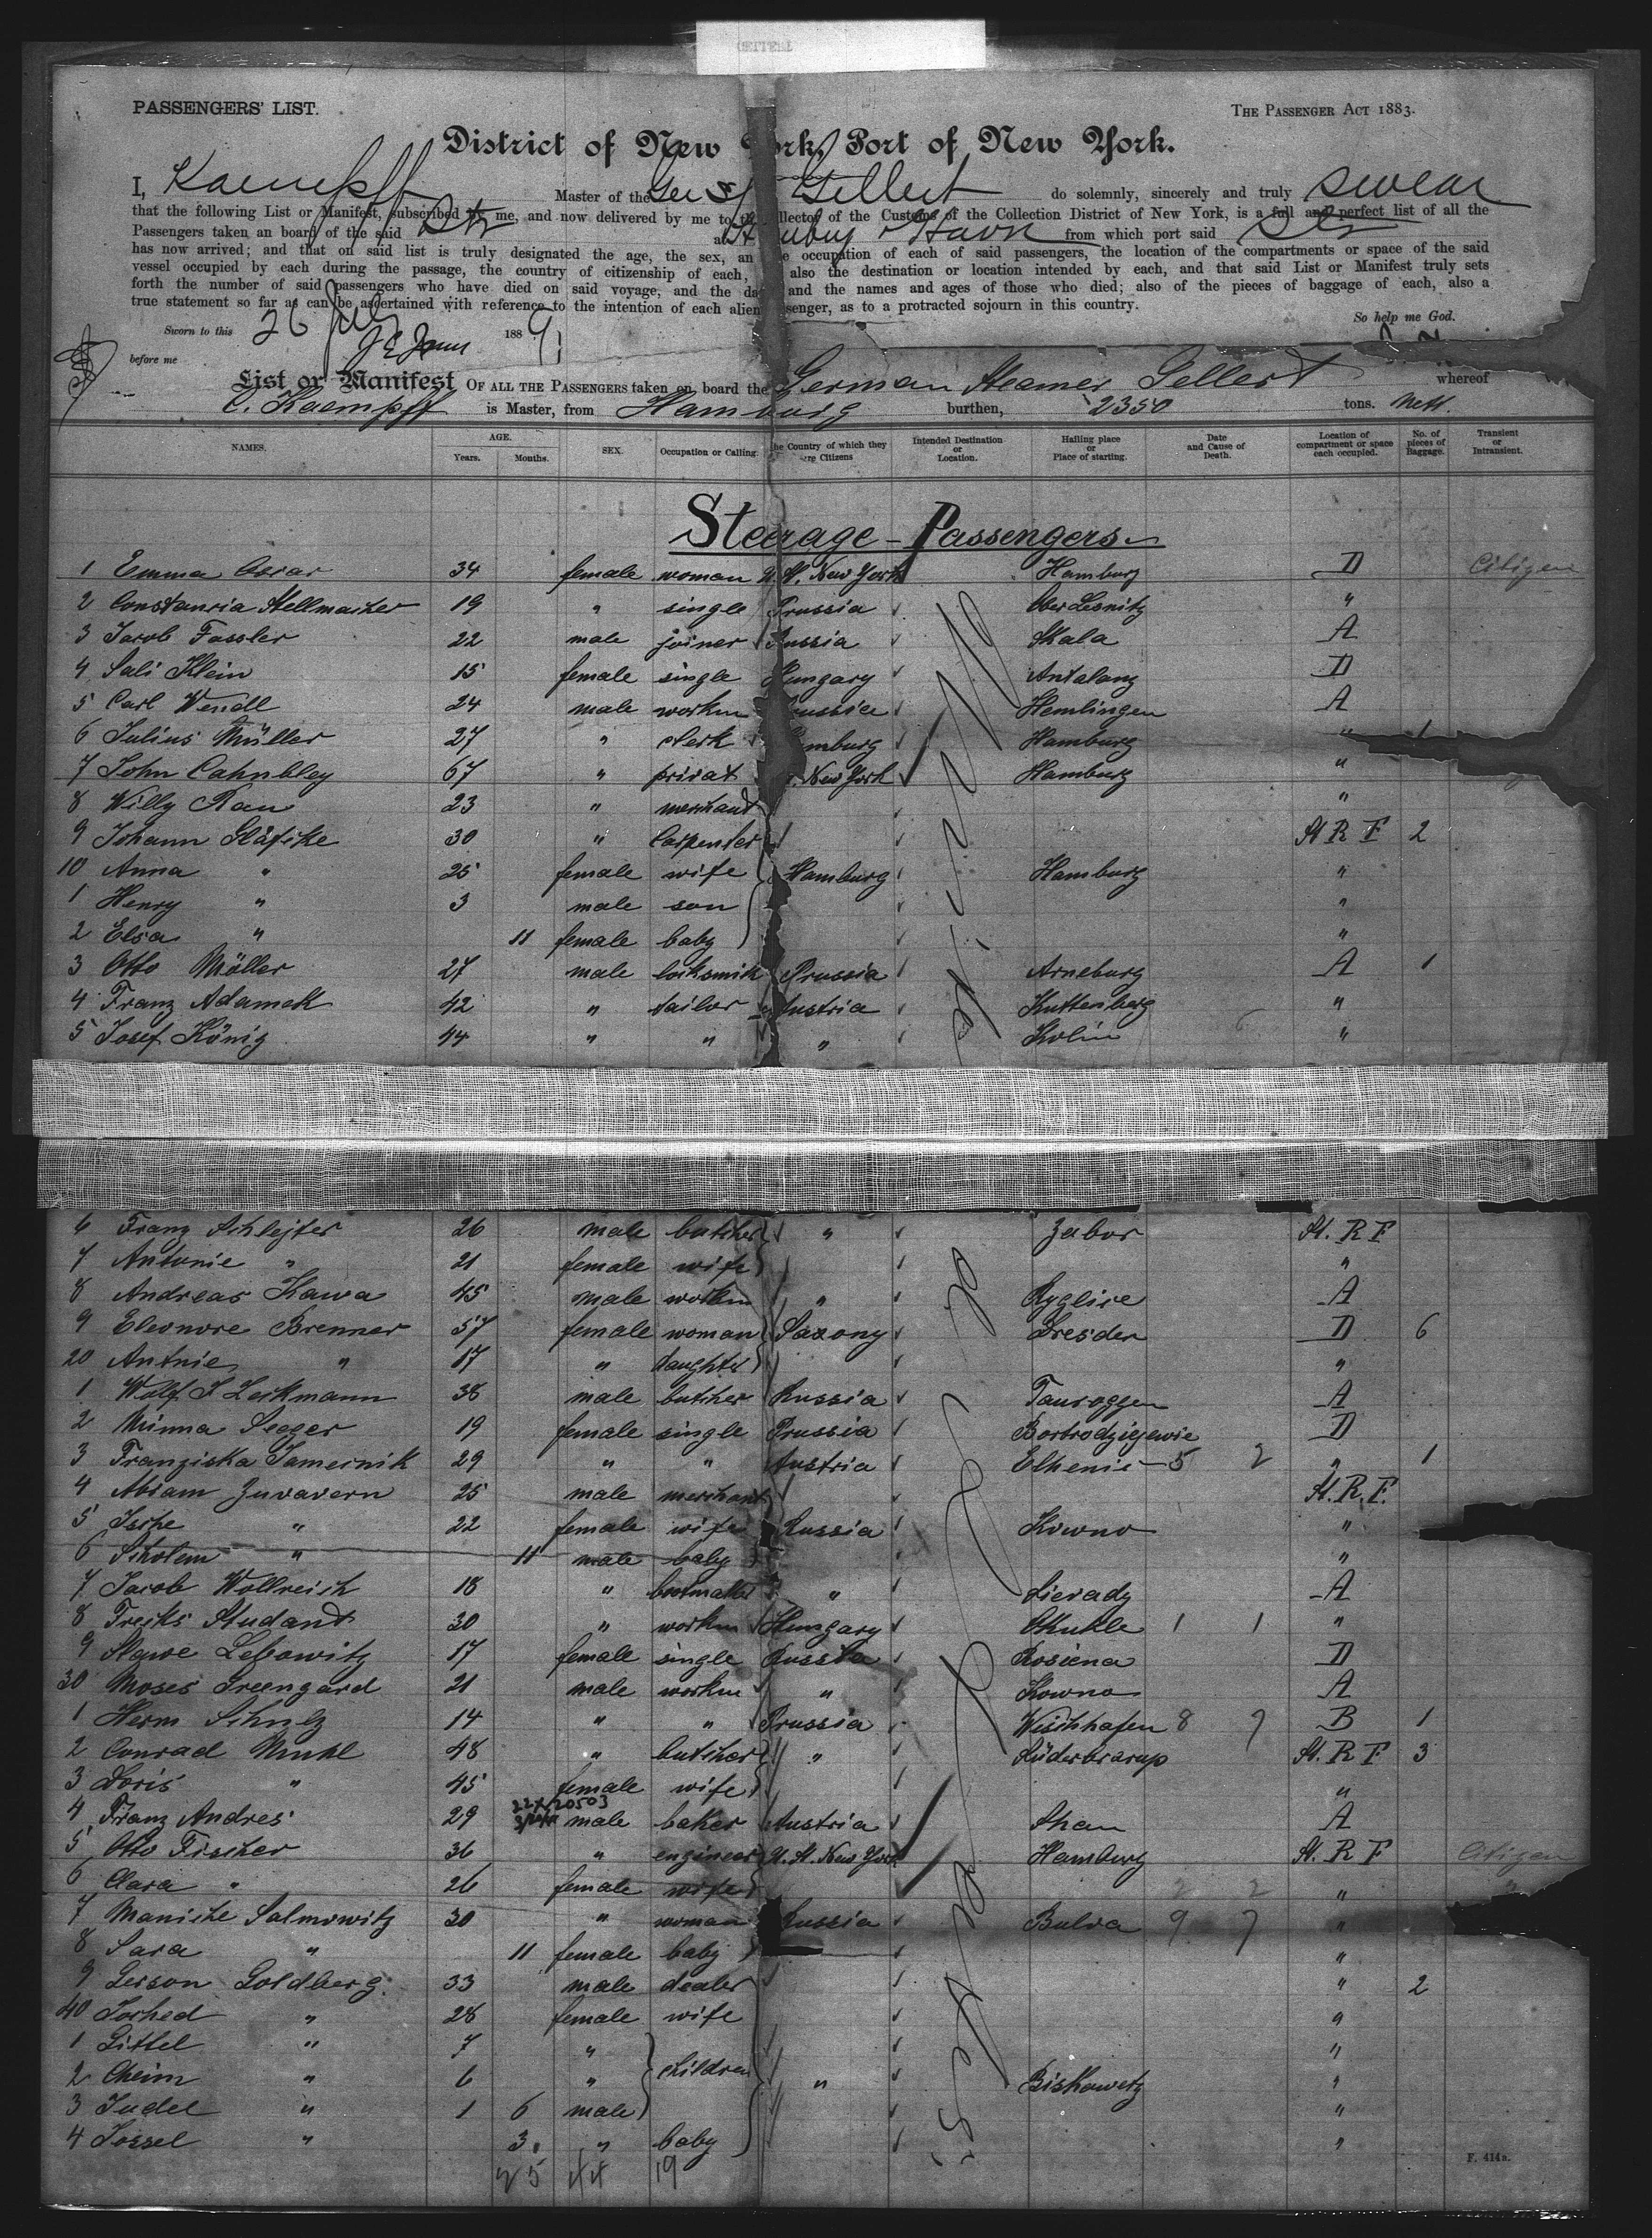 PASSENGERS' LIST.
THE PASSENGER ACT 1883.
District of New York, Port of New York.
I, Kaempff Master of the Ger St Gellert do solemnly, sincerely and truly swear
that the following List or Manifest, subscribed by me, and now delivered by me to the Collector of the Customs of the Collection District of New York, is a full and perfect list of all the
Passengers taken on board of the said Str at Hamburg & Havre from which port said Str
has now arrived; and that on said list is truly designated the age, the sex, an e occupation of each of said passengers, the location of the compartments or space of the said
vessel occupied by each during the passage, the country of citizenship of each, also the destination or location intended by each, and that said List or Manifest truly sets
forth the number of said passengers who have died on said voyage, and the da and the names and ages of those who died; also of the pieces of baggage of each, also a
true statement so far as can be ascertained with reference to the intention of each alien senger, as to a protracted sojourn in this country.
So help me God.
Sworn to this 26 July 1889
before me
List or Manifest OF ALL THE PASSENGERS taken on board the German Steamer Gellert whereof
C. Kaempff is Master, from Hamburg burthen, 2350 tons. Nett.
NAMES. AGE. Years. Months. SEX. Occupation or Calling. he Country of which they are Citizens Intended Destination or Location. Hailing place or Place of starting. Date and Cause of Death. Location of compartment or space each occupied. No. of pieces of Baggage. Transient or Intransient.
Steerage - Passengers
1 Emma 34 female woman U. St. New York Hamburg D Citizen
2 Constansia Stellmacher 19 " single Prussia Ober Lesnitz "
3 Jacob Fassler 22 male joiner Russia Skala A
4 Sali Klein 15 female single Hungary Antalang D
5 Carl Wendl 24 male workm Prussia Hemlingen A
6 Julius Müller 27 " clerk Hamburg Hamburg " 1
7 John Cahnbley 67 " privat New York Hamburg "
8 Willy Rau 23 " merchant "
9 Johann Gläfike 30 " Carpenter St R F 2
10 Anna " 25 female wife Hamburg Hamburg "
1 Henry " 3 male son "
2 Elsa " 11 female baby "
3 Otto Möller 27 male locksmith Prussia Arneburg A 1
4 Franz Adamek 42 " tailor Austria Kuttenberg "
5 Josef König 44 " " " Kolin "
6 Franz Schlejter 26 male butcher " Zabor St. R F
7 Antonie " 21 female wife "
8 Andreas Kawa 45 male workm " Ryglice A
9 Eleonore Brenner 57 female woman Saxony Dresden D 6
20 Antnie " 17 " daughter "
1 Wolf J Zeikmann 38 male butcher Russia Tauroggen A
2 Minna Seeger 19 female single Prussia D
3 Franziska Jamernik 29 " " Austria Elhenic 5 2 " 1
4 Abiam Zuvavern 25 male merchant St. R. F.
5 Ische " 22 female wife Russia Kowno "
6 Scholem " 11 male baby "
7 Jacob Wollreich 18 " bootmaker " Sieradz A
8 Treiks Studant 30 " workm Hungary 1 1 "
9 Stawe Lebowitz 17 female single Russia Rosiena D
30 Moses Greengard 21 male workm " Kowno A
1 Herm Schulz 14 " " Prussia Wischhafen 8 7 B 1
2 Conrad Muhl 48 " butcher " Süderbrarup St. R F 3
3 Doris " 45 female wife "
22X20503
4 Franz Andres 29 male baker Austria Shau A
5 Otto Fischer 36 " engineer U. St. New York Hamburg St. R F Citizen
6 Clara " 26 female wife 2 2 " "
7 Maniche Salmowitz 30 " woman Russia Bulva 9 7 "
8 Sara " 11 female baby "
9 Gerson Goldberg 33 male dealer " 2
40 Sorhed " 28 female wife "
1 Gittel " 7 " children "
2 Cheim " 6 " " Biskowetz "
3 Judel " 1 6 male "
4 Jossel " 3 " baby "
25 44 19
F. 414a.